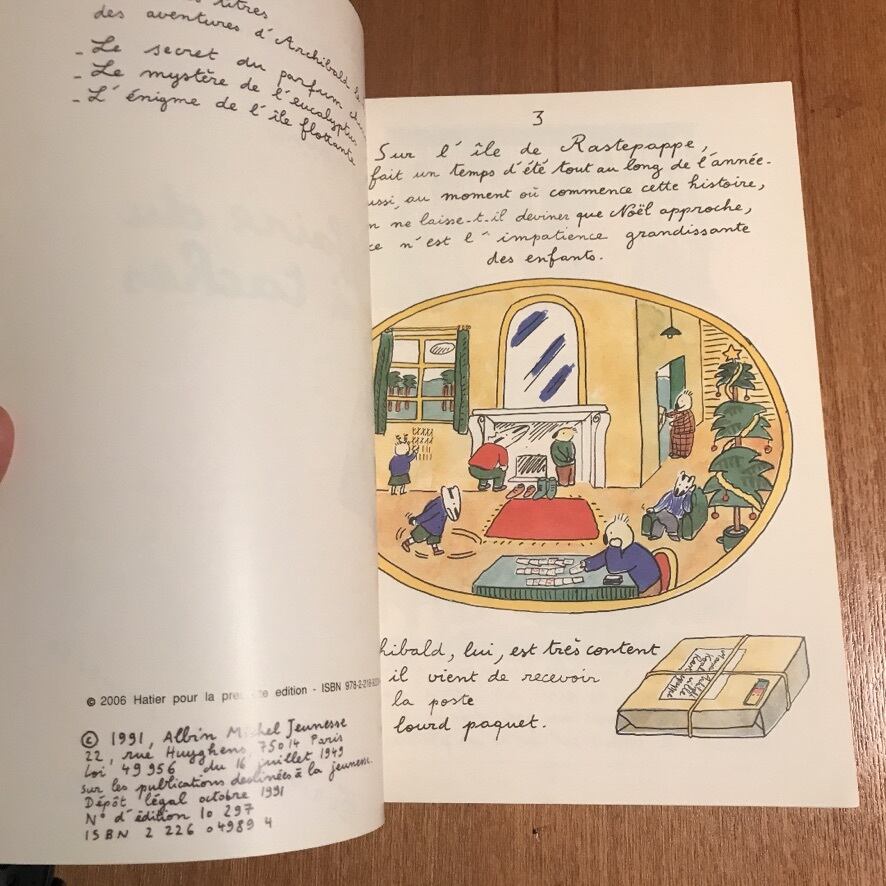 titres
des aventures d'Archibald
- Le secret du parfum
- Le mystère de l'eucalyptus
- L'énigme de l'île flottante
© 2006 Hatier pour la édition - ISBN 978-2-218-
© 1991, Albin Michel Jeunesse
22, rue Huyghens, 75014 Paris
Loi 49956 du 16 juillet 1949
sur les publications destinées à la jeunesse.
Dépôt légal octobre 1991
N° d'édition 10 297
ISBN 2 226 04989 4
3
Sur l'île de Rastepappe,
fait un temps d'été tout au long de l'année.
ussi, au moment où commence cette histoire,
n ne laisse-t-il deviner que Noël approche,
ce n'est l'impatience grandissante
des enfants.
hibald, lui, est très content
il vient de recevoir
la poste
lourd paquet.